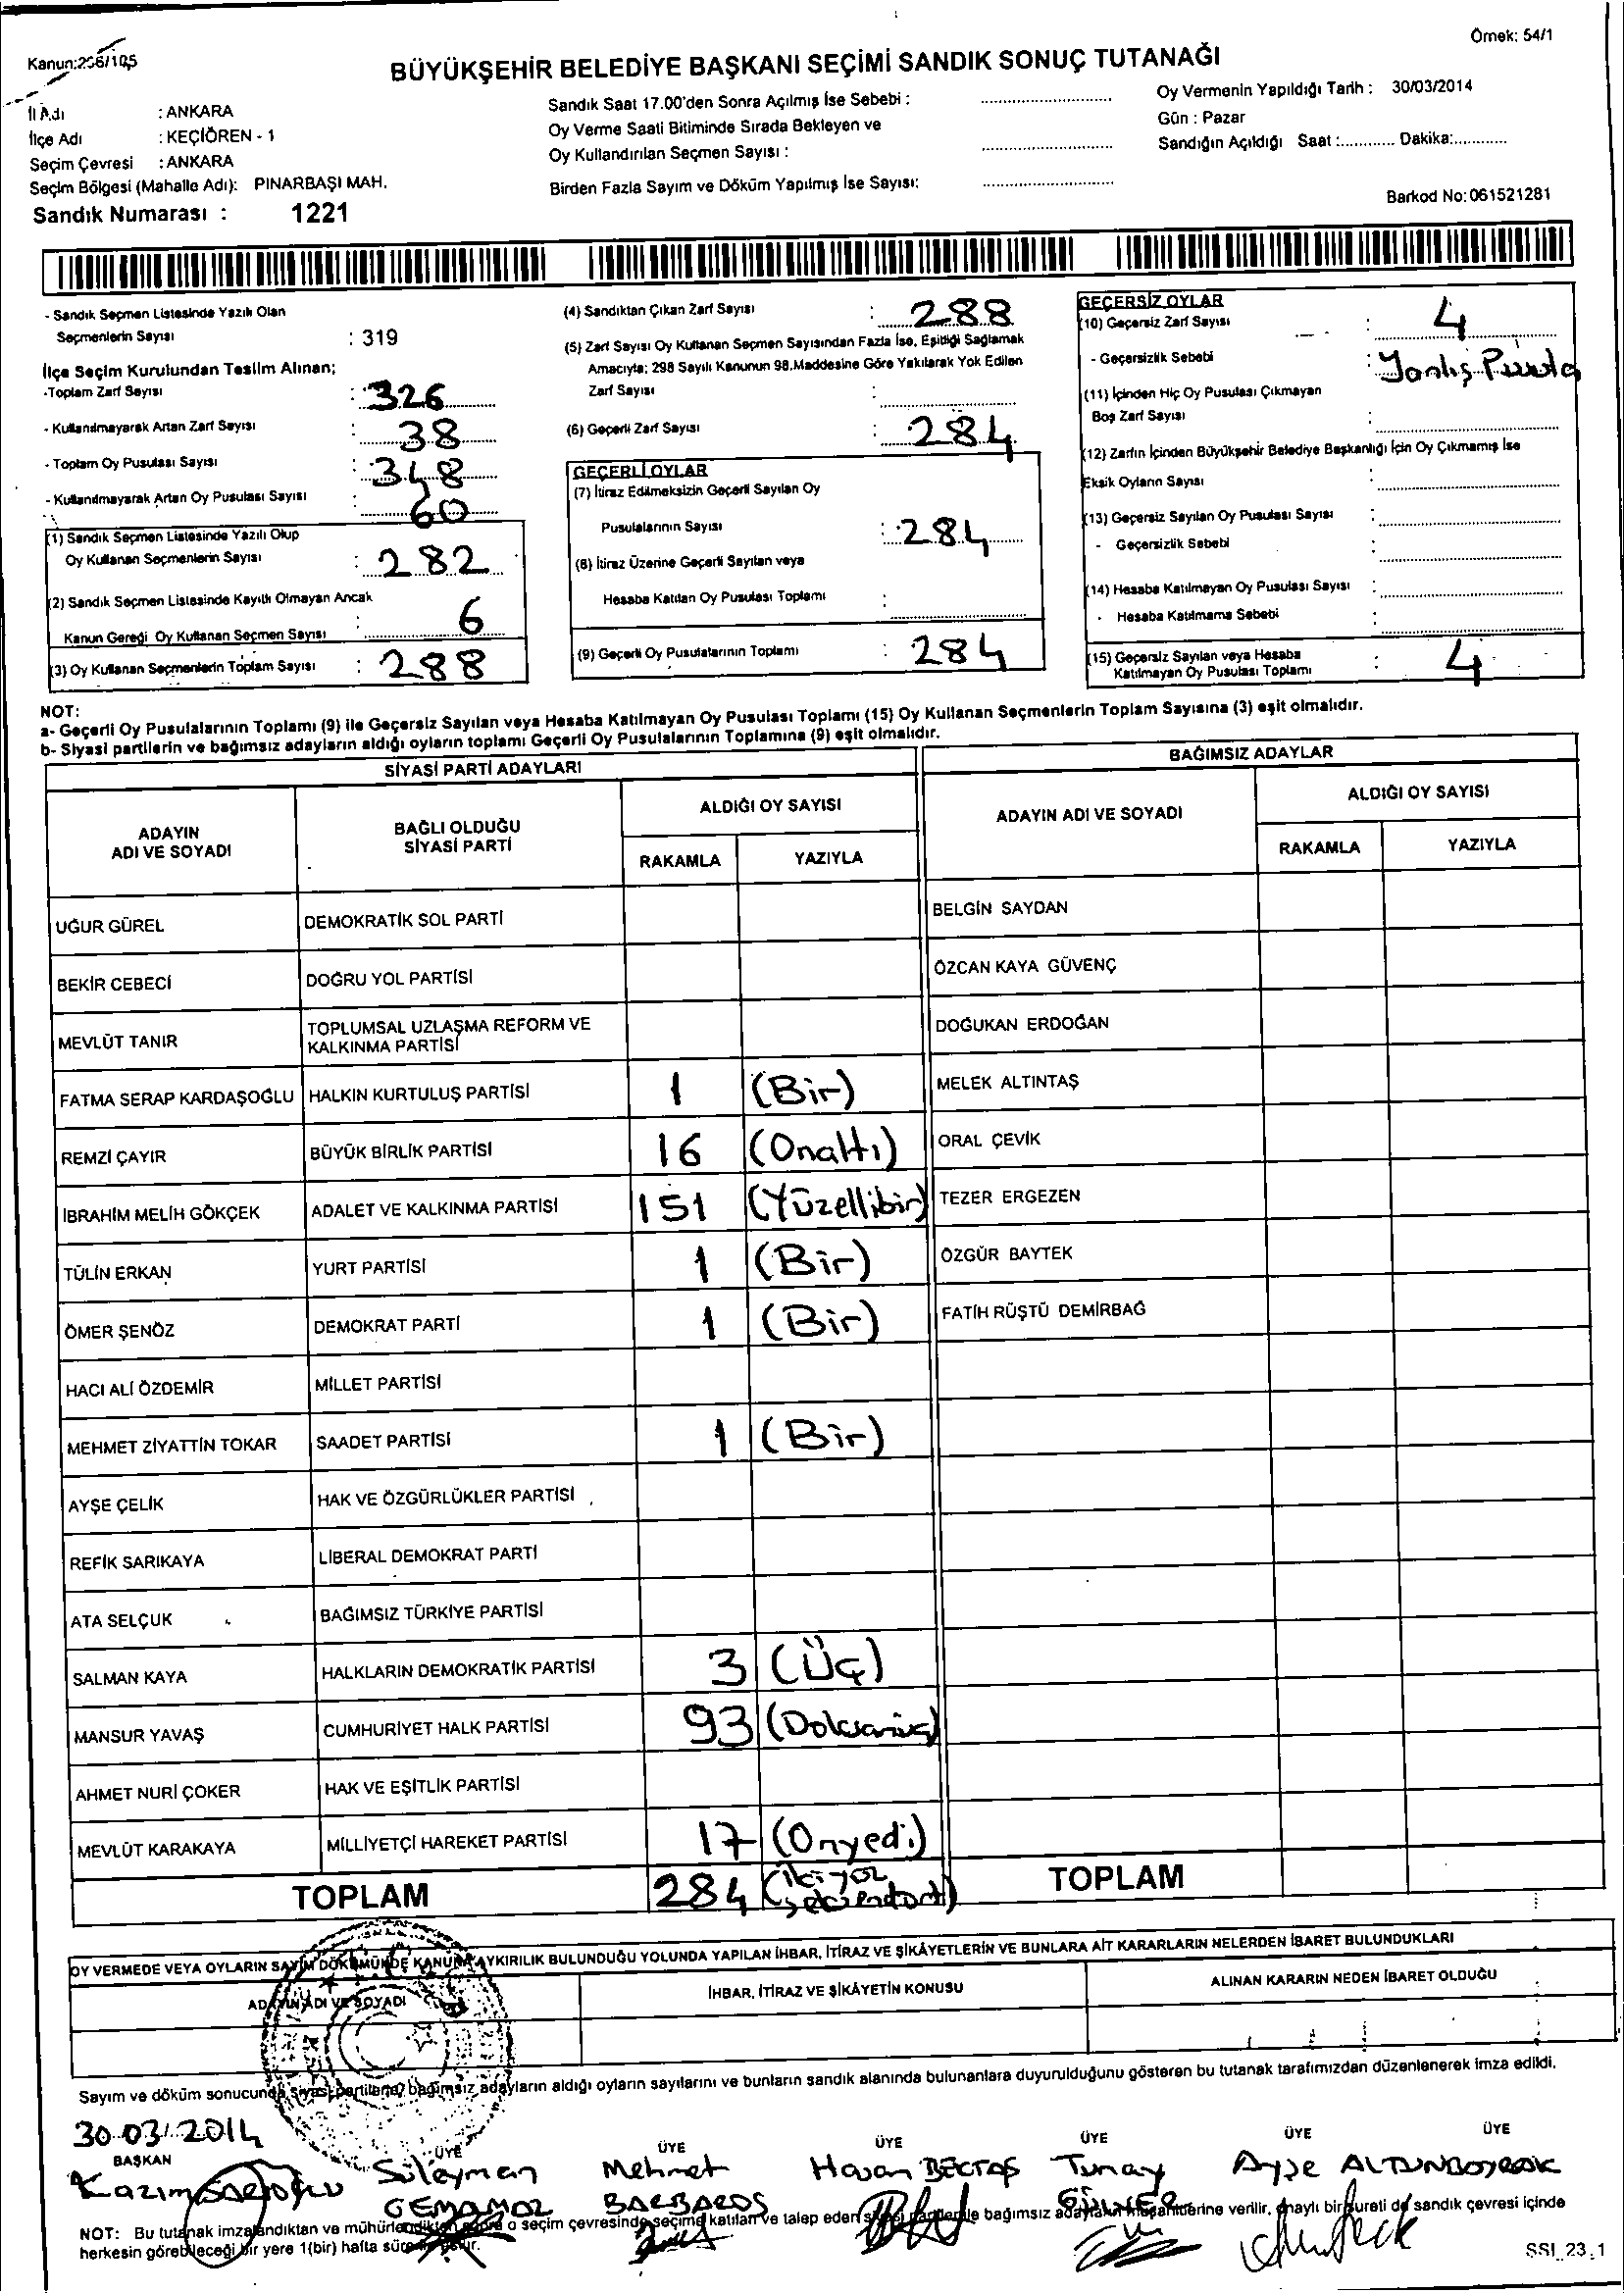 Örnek: 54/1
Kanun:298/195
BÜYÜKŞEHİR BELEDİYE BAŞKANI SEÇİMİ SANDIK SONUÇ TUTANAĞI
İl Adı : ANKARA
İlçe Adı : KEÇİÖREN - 1
Seçim Çevresi : ANKARA
Seçim Bölgesi (Mahalle Adı): PINARBAŞI MAH.
Sandık Numarası : 1221
Sandık Saat 17.00'den Sonra Açılmış İse Sebebi :
Oy Verme Saati Bitiminde Sırada Bekleyen ve
Oy Kullandırılan Seçmen Sayısı :
Birden Fazla Sayım ve Döküm Yapılmış İse Sayısı:
Oy Vermenin Yapıldığı Tarih : 30/03/2014
Gün : Pazar
Sandığın Açıldığı Saat :............ Dakika:............
Barkod No: 061521281
- Sandık Seçmen Listesinde Yazılı Olan
Seçmenlerin Sayısı : 319
İlçe Seçim Kurulundan Teslim Alınan;
-Toplam Zarf Sayısı : 326
- Kullanılmayarak Artan Zarf Sayısı : 38
- Toplam Oy Pusulası Sayısı : 348
- Kullanılmayarak Artan Oy Pusulası Sayısı : 60
(1) Sandık Seçmen Listesinde Yazılı Olup
Oy Kullanan Seçmenlerin Sayısı : 282
(2) Sandık Seçmen Listesinde Kayıtlı Olmayan Ancak
Kanun Gereği Oy Kullanan Seçmen Sayısı : 6
(3) Oy Kullanan Seçmenlerin Toplam Sayısı : 288
(4) Sandıktan Çıkan Zarf Sayısı : 288
(5) Zarf Sayısı Oy Kullanan Seçmen Sayısından Fazla İse, Eşitliği Sağlamak
Amacıyla; 298 Sayılı Kanunun 98.Maddesine Göre Yakılarak Yok Edilen
Zarf Sayısı :
(6) Geçerli Zarf Sayısı : 284
GEÇERLİ OYLAR
(7) İtiraz Edilmeksizin Geçerli Sayılan Oy
Pusulalarının Sayısı : 284
(8) İtiraz Üzerine Geçerli Sayılan veya
Hesaba Katılan Oy Pusulası Toplamı :
(9) Geçerli Oy Pusulalarının Toplamı : 284
GEÇERSİZ OYLAR
(10) Geçersiz Zarf Sayısı : 4
- Geçersizlik Sebebi : Yanlış Pusula
(11) İçinden Hiç Oy Pusulası Çıkmayan
Boş Zarf Sayısı :
(12) Zarfın İçinden Büyükşehir Belediye Başkanlığı İçin Oy Çıkmamış İse
Eksik Oyların Sayısı :
(13) Geçersiz Sayılan Oy Pusulası Sayısı :
- Geçersizlik Sebebi :
(14) Hesaba Katılmayan Oy Pusulası Sayısı :
- Hesaba Katılmama Sebebi :
(15) Geçersiz Sayılan veya Hesaba
Katılmayan Oy Pusulası Toplamı : 4
NOT:
a- Geçerli Oy Pusulalarının Toplamı (9) ile Geçersiz Sayılan veya Hesaba Katılmayan Oy Pusulası Toplamı (15) Oy Kullanan Seçmenlerin Toplam Sayısına (3) eşit olmalıdır.
b- Siyasi partilerin ve bağımsız adayların aldığı oyların toplamı Geçerli Oy Pusulalarının Toplamına (9) eşit olmalıdır.
SİYASİ PARTİ ADAYLARI
BAĞIMSIZ ADAYLAR
ADAYIN ADI VE SOYADI
BAĞLI OLDUĞU SİYASİ PARTİ
ALDIĞI OY SAYISI
RAKAMLA YAZIYLA
ADAYIN ADI VE SOYADI
ALDIĞI OY SAYISI
RAKAMLA YAZIYLA
UĞUR GÜREL DEMOKRATİK SOL PARTİ BELGİN SAYDAN
BEKİR CEBECİ DOĞRU YOL PARTİSİ ÖZCAN KAYA GÜVENÇ
MEVLÜT TANIR TOPLUMSAL UZLAŞMA REFORM VE KALKINMA PARTİSİ DOĞUKAN ERDOĞAN
FATMA SERAP KARDAŞOĞLU HALKIN KURTULUŞ PARTİSİ 1 (Bir) MELEK ALTINTAŞ
REMZİ ÇAYIR BÜYÜK BİRLİK PARTİSİ 16 (Onaltı) ORAL ÇEVİK
İBRAHİM MELİH GÖKÇEK ADALET VE KALKINMA PARTİSİ 151 (Yüzellibir) TEZER ERGEZEN
TÜLİN ERKAN YURT PARTİSİ 1 (Bir) ÖZGÜR BAYTEK
ÖMER ŞENÖZ DEMOKRAT PARTİ 1 (Bir) FATİH RÜŞTÜ DEMİRBAĞ
HACI ALİ ÖZDEMİR MİLLET PARTİSİ
MEHMET ZİYATTİN TOKAR SAADET PARTİSİ 1 (Bir)
AYŞE ÇELİK HAK VE ÖZGÜRLÜKLER PARTİSİ
REFİK SARIKAYA LİBERAL DEMOKRAT PARTİ
ATA SELÇUK BAĞIMSIZ TÜRKİYE PARTİSİ
SALMAN KAYA HALKLARIN DEMOKRATİK PARTİSİ 3 (Üç)
MANSUR YAVAŞ CUMHURİYET HALK PARTİSİ 93 (Doksanüç)
AHMET NURİ ÇOKER HAK VE EŞİTLİK PARTİSİ
MEVLÜT KARAKAYA MİLLİYETÇİ HAREKET PARTİSİ 17 (Onyedi)
TOPLAM 284 (ikiyüz seksendört) TOPLAM
OY VERMEDE VEYA OYLARIN SAYIM DÖKÜMÜNDE KANUNA AYKIRILIK BULUNDUĞU YOLUNDA YAPILAN İHBAR, İTİRAZ VE ŞİKÂYETLERİN VE BUNLARA AİT KARARLARIN NELERDEN İBARET BULUNDUKLARI
ADAYIN ADI VE SOYADI İHBAR, İTİRAZ VE ŞİKÂYETİN KONUSU ALINAN KARARIN NEDEN İBARET OLDUĞU
Sayım ve döküm sonucunda siyasi partilerin/ bağımsız adayların aldığı oyların sayılarını ve bunların sandık alanında bulunanlara duyurulduğunu gösteren bu tutanak tarafımızdan düzenlenerek imza edildi.
30.03.2014
BAŞKAN ÜYE ÜYE ÜYE ÜYE ÜYE ÜYE
Kazım Süleyman Mehmet Hasan BEKTAŞ Tunay Ayşe ALTUNBOYRAK
BARBAROS GÜLNER
NOT: Bu tutanak imzalandıktan ve mühürlendikten sonra o seçim çevresinde seçime katılan ve talep eden siyasi partilerle bağımsız adayların müşahitlerine verilir, onaylı bir sureti de sandık çevresi içinde
herkesin görebileceği bir yere 1(bir) hafta süre
SSI_23_1